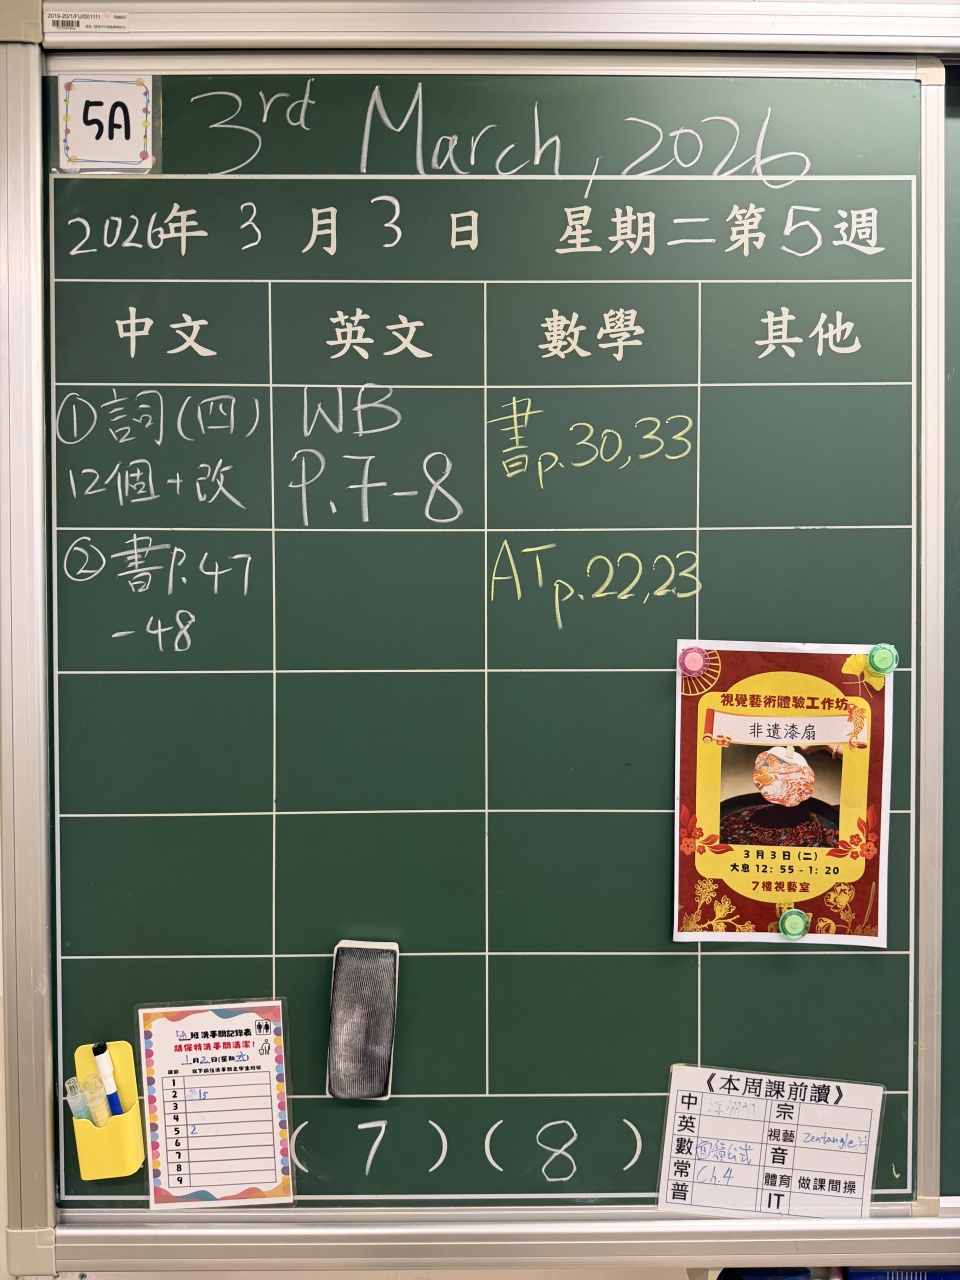 2019-20/1/FU/001111
5A
3rd March, 2026
2026年 3 月 3 日 星期二第5週
中文 英文 數學 其他
①詞(四)
12個+改
WB
P.7-8
書p.30,33
②書P.47
-48
AT p.22,23
視覺藝術體驗工作坊
非遺漆扇
3月3日(二)
大息 12:55-1:20
7樓視藝室
5A班洗手間記錄表
請保持洗手間清潔!
1
2 15
3
4
5 2
6
7
8
9
(7)(8)
《本周課前讀》
中
宗
英
視藝 Zentangle
數
音
常 Ch.4
體育 做課間操
普
IT